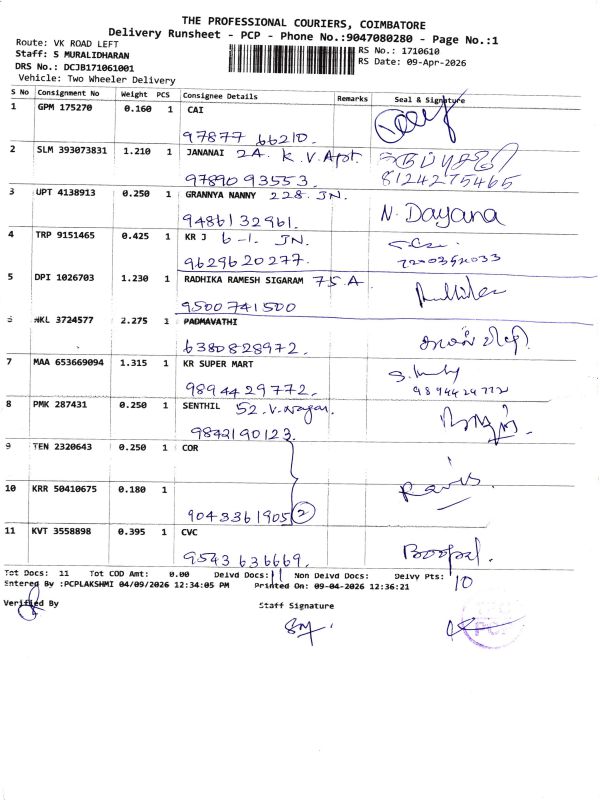 THE PROFESSIONAL COURIERS, COIMBATORE
Delivery Runsheet - PCP - Phone No.:9047080280 - Page No.:1
Route: VK ROAD LEFT
Staff: S MURALIDHARAN
DRS No.: DCJB171061001
Vehicle: Two Wheeler Delivery
RS No.: 1710610
RS Date: 09-Apr-2026
S No Consignment No Weight PCS Consignee Details Remarks Seal & Signature
1 GPM 175270 0.160 1 CAI
97877 66210.
2 SLM 393073831 1.210 1 JANANAI 2A. K.V.Apt.
97890 93553. 8124275465
3 UPT 4138913 0.250 1 GRANNYA NANNY 228. JN.
9486132961. N. Dayana
4 TRP 9151465 0.425 1 KR J 6-1. JN.
9629620277. 7200392033
5 DPI 1026703 1.230 1 RADHIKA RAMESH SIGARAM 75.A.
9500741500
NKL 3724577 2.275 1 PADMAVATHI
6380828972.
7 MAA 653669094 1.315 1 KR SUPER MART
9894429772. 9894429772
8 PMK 287431 0.250 1 SENTHIL 52. V. Nagar.
9842190123.
9 TEN 2320643 0.250 1 COR
10 KRR 50410675 0.180 1
9043361905 2
11 KVT 3558898 0.395 1 CVC
9543636669. Boopal.
Tot Docs: 11 Tot COD Amt: 0.00 Delvd Docs: 11 Non Delvd Docs: Delvy Pts: 10
Entered By :PCPLAKSHMI 04/09/2026 12:34:05 PM Printed On: 09-04-2026 12:36:21
Verified By Staff Signature
PCP